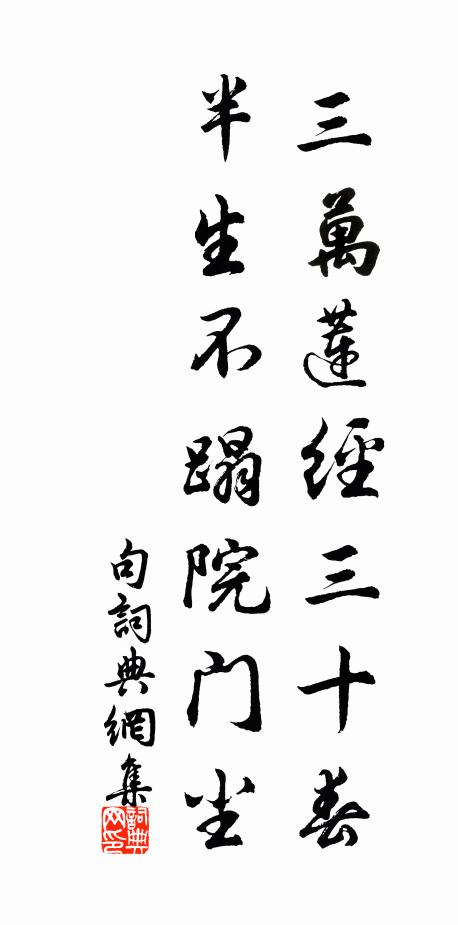 三萬蓮經三十春
半生不蹋院门尘
句詞典網集
詞典网印